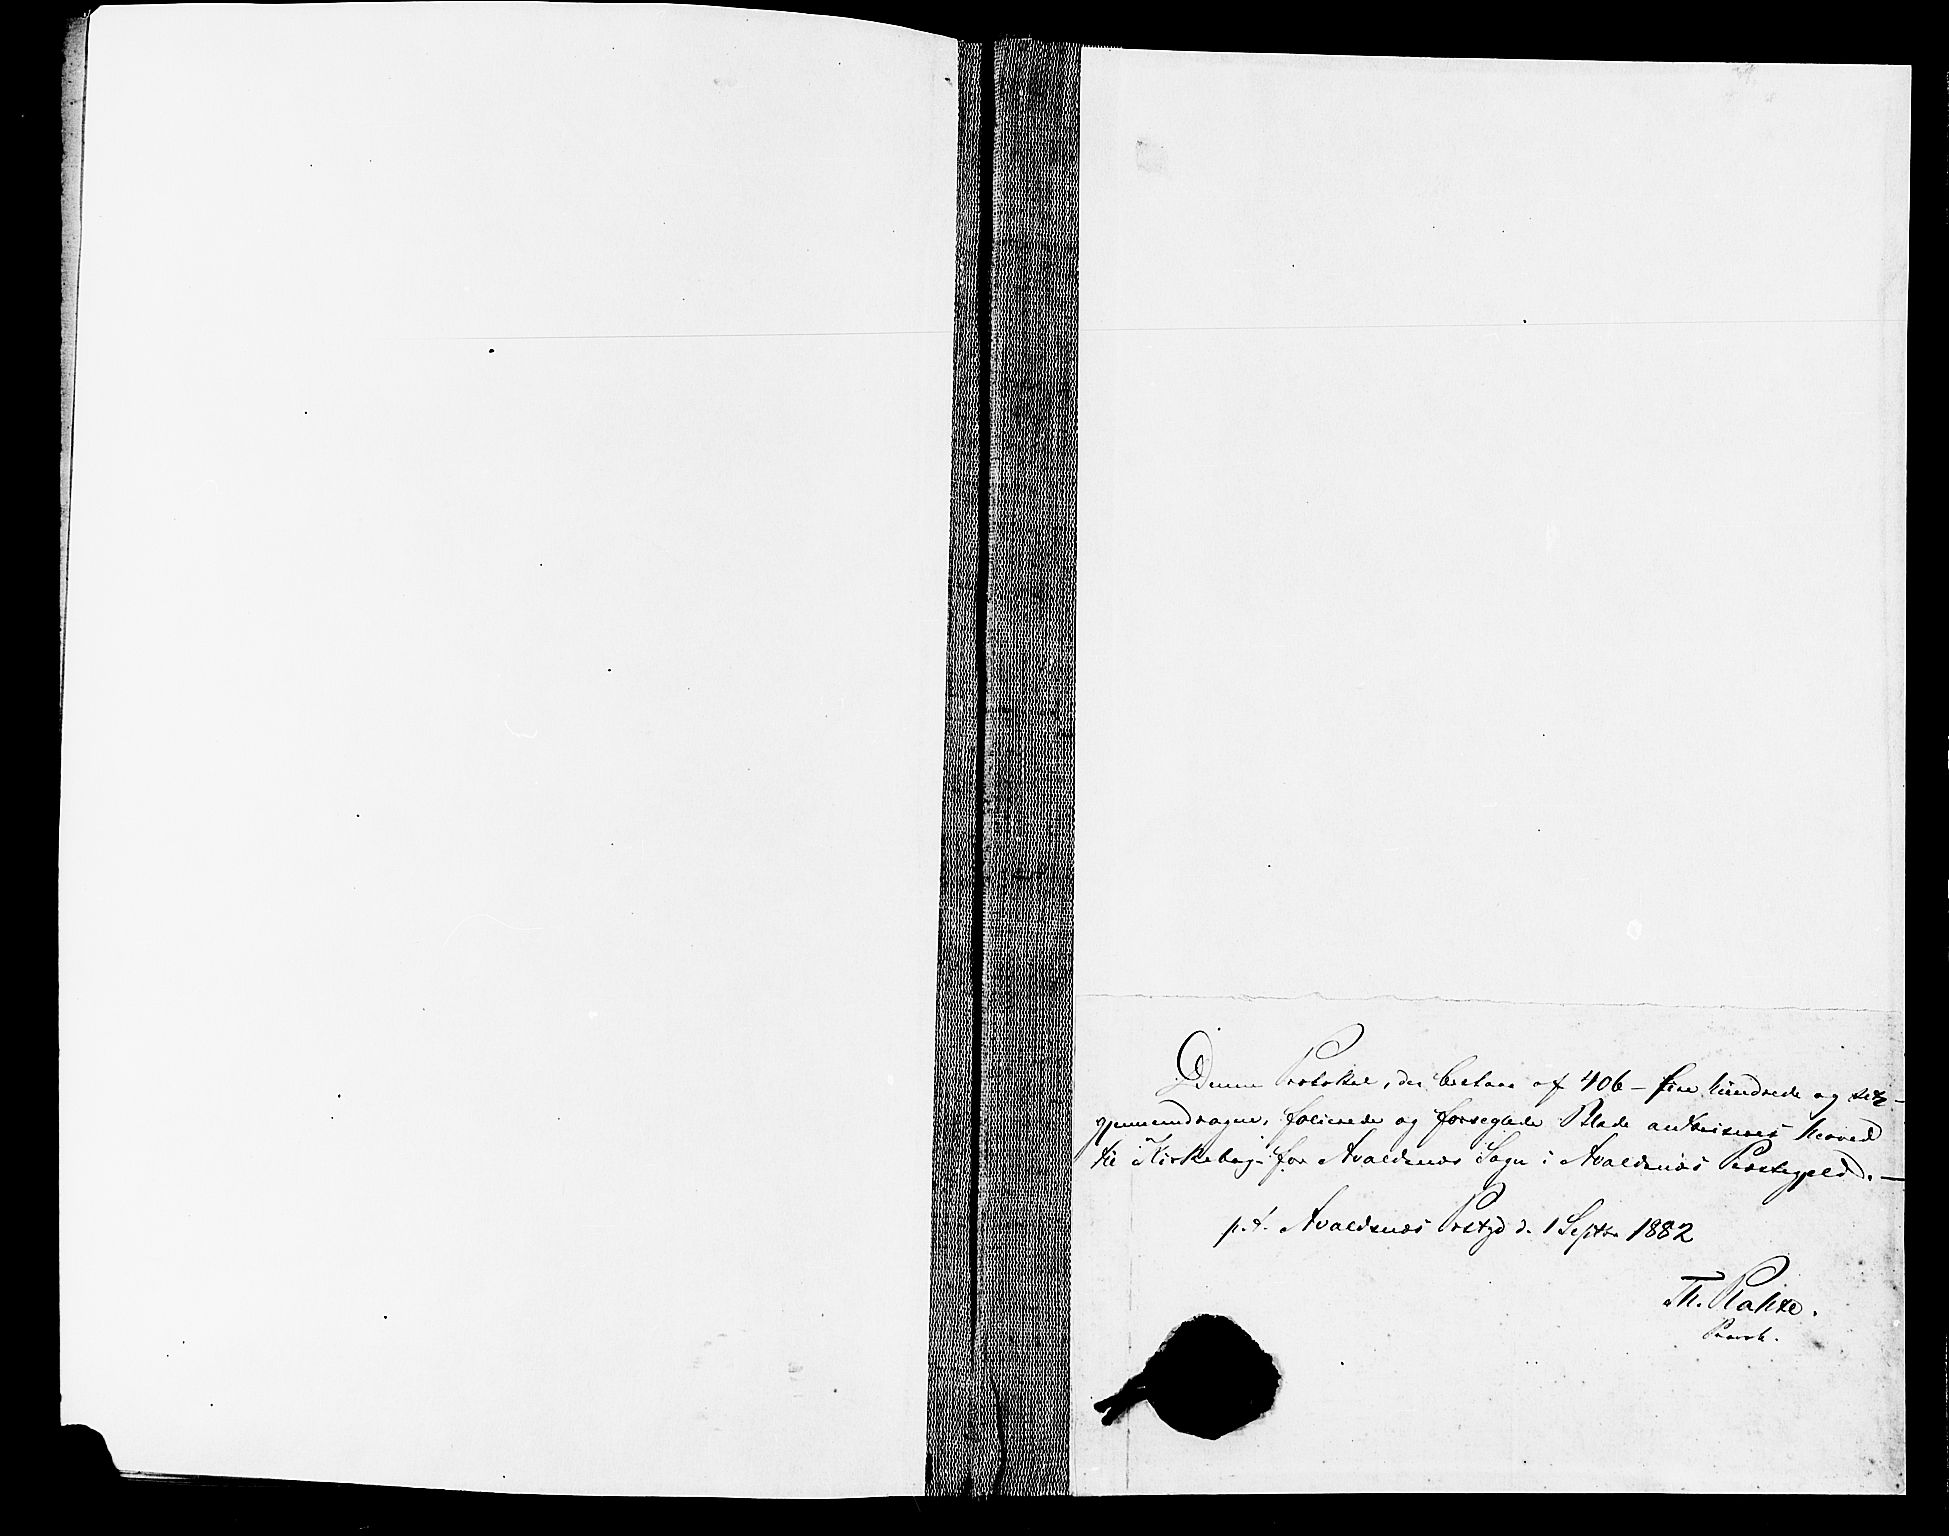 Denne Protokol, der bestaar af 406 – fire hundrede og sex –
gjennemdragne, folierede og forseglede Blade authoriseres herved
til Kirkebog for Avaldsnæs Sogn i Avaldsnæs Præstegjeld. –
p.t. Avaldsnæs Prstgd d. 1 Septbr 1882
Th.
Provst.